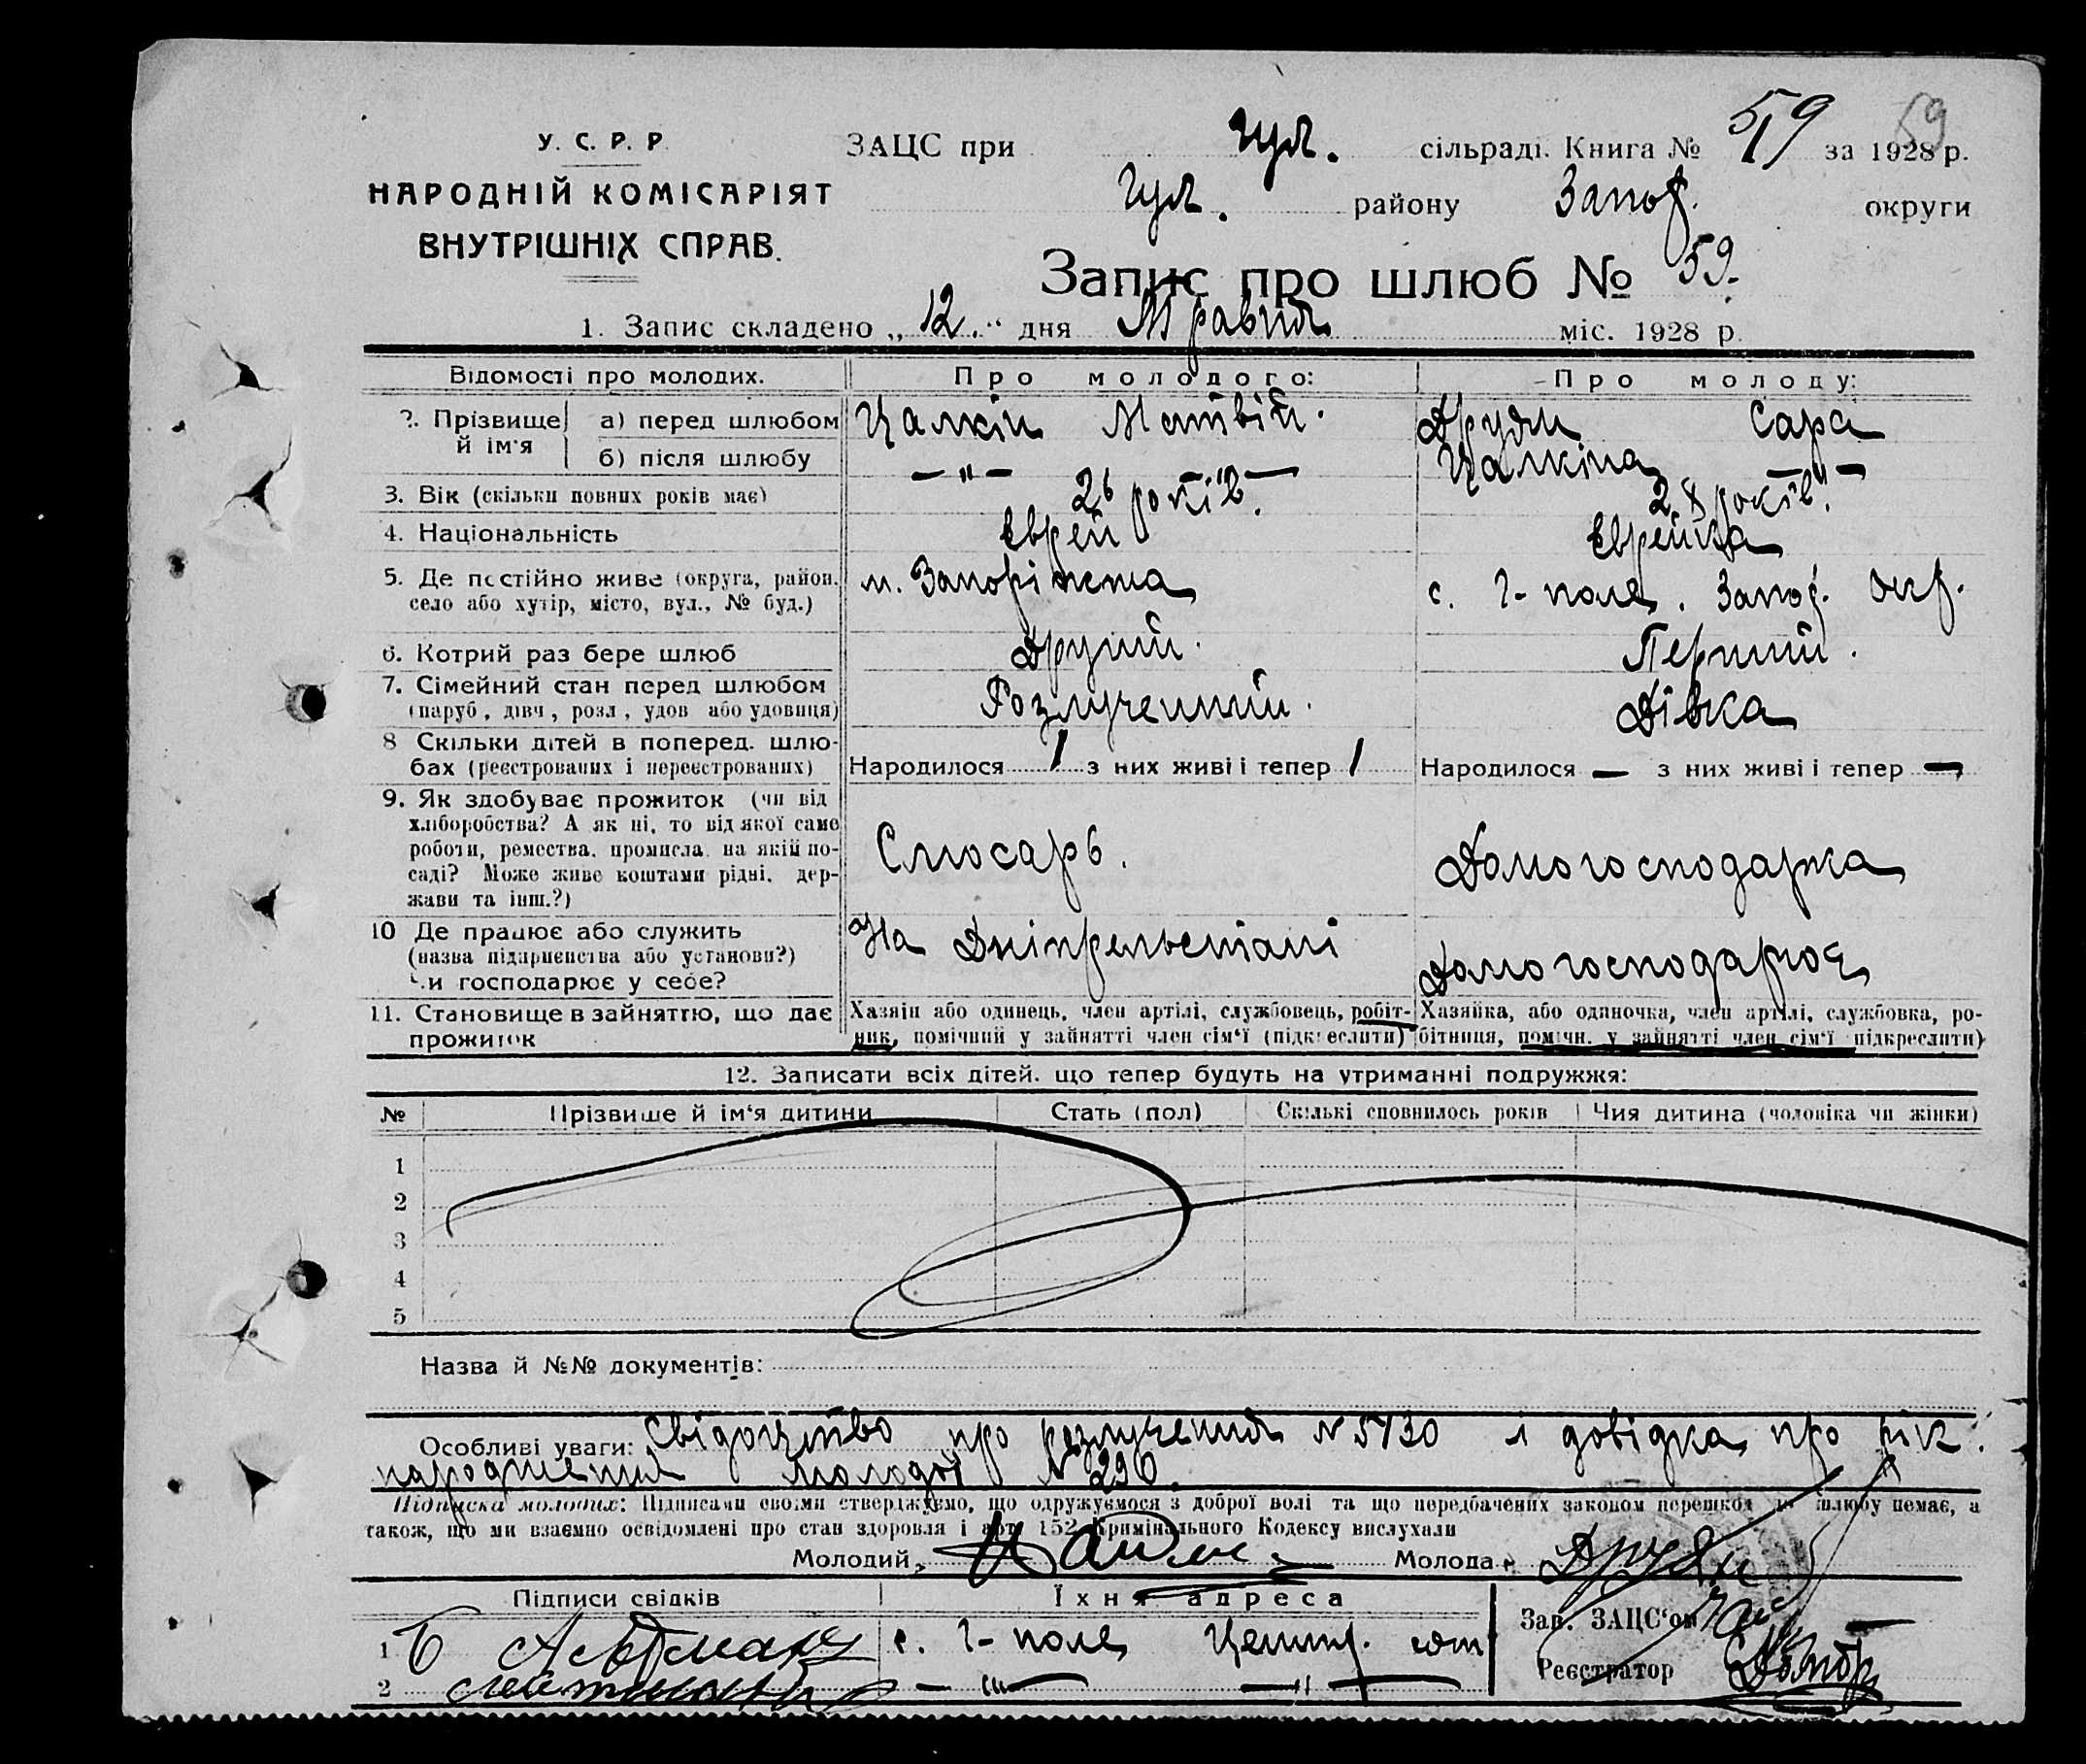 У. С. Р. Р.
НАРОДНІЙ КОМІСАРІЯТ
ВНУТРІШНІХ СПРАВ.
ЗАЦС при гул. сільраді. Книга № за 1928 р.
59
гул. району Запор. округи
Запис про шлюб № 59.
1. Запис складено „12.“ дня Травня міс. 1928 р.
Відомості про молодих. Про молодого: Про молоду:
2. Прізвище й ім'я а) перед шлюбом Цалкін Матвій. Друян Сара
б) після шлюбу — " — — " — Цалкіна — " —
3. Вік (скільки повних років має) 26 років. 28 років.
4. Національність Єврей Єврейка
5. Де постійно живе (округа, район, м. Запоріжжа с. Г-поле. Запор. окр.
село або хутір, місто, вул., № буд.)
6. Котрий раз бере шлюб Другий. Перший.
7. Сімейний стан перед шлюбом Розлучений. Дівка
(паруб., дівч., розл., удов або удовиця)
8 Скільки дітей в поперед. шлю-
бах (реєстрованих і нереєстрованих) Народилося 1 з них живі і тепер 1 Народилося — з них живі і тепер —
9. Як здобуває прожиток (чи від
хліборобства? А як ні, то від якої саме
роботи, ремества, промисла, на якій по- Слюсарь. Домогосподарка
саді? Може живе коштами рідні, дер-
жави та інш.?)
10 Де працює або служить На Дніпрельстані Домогосподарює
(назва підприємства або установи?)
Чи господарює у себе?
11. Становище в зайняттю, що дає Хазяїн або одинець, член артілі, службовець, робіт- Хазяйка, або одиночка, член артілі, службовка, ро-
прожиток ник, помічний у зайнятті член сім'ї (підкреслити) бітниця, помічн. у зайнятті член сім'ї підкреслити)
12. Записати всіх дітей, що тепер будуть на утриманні подружжя:
№ Прізвище й ім'я дитини Стать (пол) Скількі сповнилось років Чия дитина (чоловіка чи жінки)
1
2
3
4
5
Назва й №№ документів:
Особливі уваги: Свідоцтво про розлучення № 5730 і довідка про рік
народження молодої № 296.
Підписка молодих: Підписами своїми стверджуємо, що одружуємося з доброї волі та що передбачених законом перешкод до шлюбу немає, а
також, що ми взаємно освідомлені про стан здоровля і арт. 152 Кримінального Кодексу вислухали
Молодий, Молода Друян
Підписи свідків Їхня адреса Зав. ЗАЦС'ом
1 с. Г-поле Центр. сот
2 — " — — " — Реєстратор